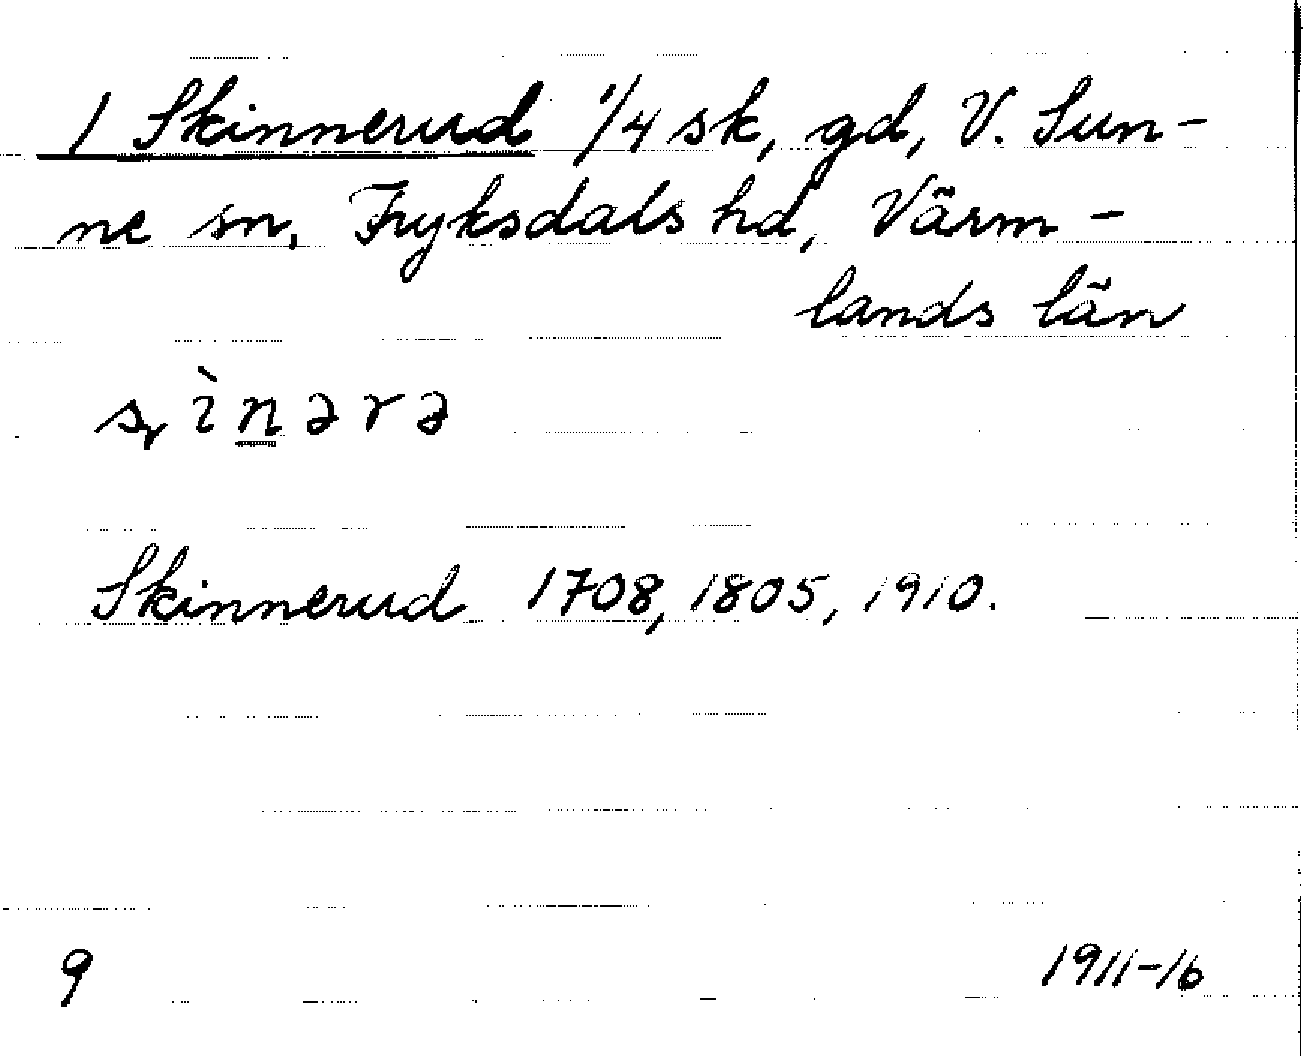 1 Skinnerud 1/4 sk, gd, V. Sun-
ne sn, Fryksdals hd, Värm-
lands län
s̢ ìn̲ərə
Skinnerud 1708, 1805, 1910.
9
1911-16